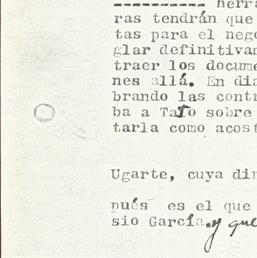 ---------- herra
ras tendrán que
tas para el nego
glar definitivam
traer los docume
nes allá. En dia
brando las contr
ba a Tato sobre
tarla como acost
Ugarte, cuya dir
pués es el que
sio García. y que